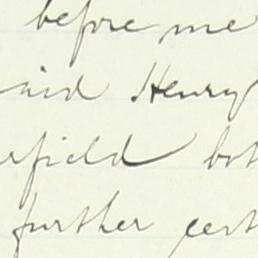 before me
aid Henry
rfield bot
further cert